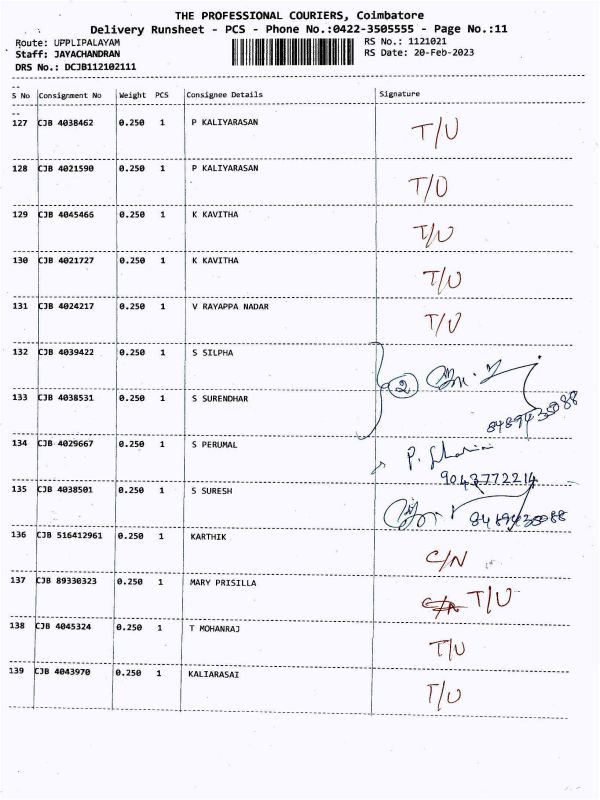 THE PROFESSIONAL COURIERS, Coimbatore
Delivery Runsheet - PCS - Phone No.:0422-3505555 - Page No.:11
Route: UPPLIPALAYAM
RS No.: 1121021
Staff: JAYACHANDRAN
RS Date: 20-Feb-2023
DRS No.: DCJB112102111
S No Consignment No Weight PCS Consignee Details Signature
127 CJB 4038462 0.250 1 P KALIYARASAN T/U
128 CJB 4021590 0.250 1 P KALIYARASAN T/U
129 CJB 4045466 0.250 1 K KAVITHA T/U
130 CJB 4021727 0.250 1 K KAVITHA T/U
131 CJB 4024217 0.250 1 V RAYAPPA NADAR T/U
132 CJB 4039422 0.250 1 S SILPHA
2
133 CJB 4038531 0.250 1 S SURENDHAR
134 CJB 4029667 0.250 1 S PERUMAL P.
9043772214
135 CJB 4038501 0.250 1 S SURESH
136 CJB 516412961 0.250 1 KARTHIK C/N
137 CJB 89330323 0.250 1 MARY PRISILLA T/U
138 CJB 4045324 0.250 1 T MOHANRAJ T/U
139 CJB 4043970 0.250 1 KALIARASAI T/U